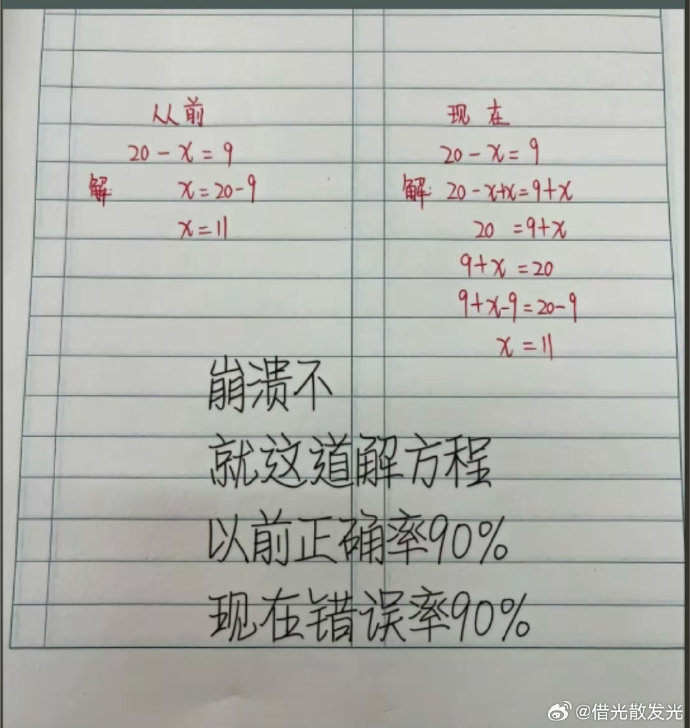 从前
20 - x = 9
解: x = 20-9
x = 11
现在
20 - x = 9
解: 20 - x+x = 9+x
20 = 9+x
9+x = 20
9+x-9 = 20-9
x = 11
崩溃不
就这道解方程
以前正确率90%
现在错误率90%
@借光散发光